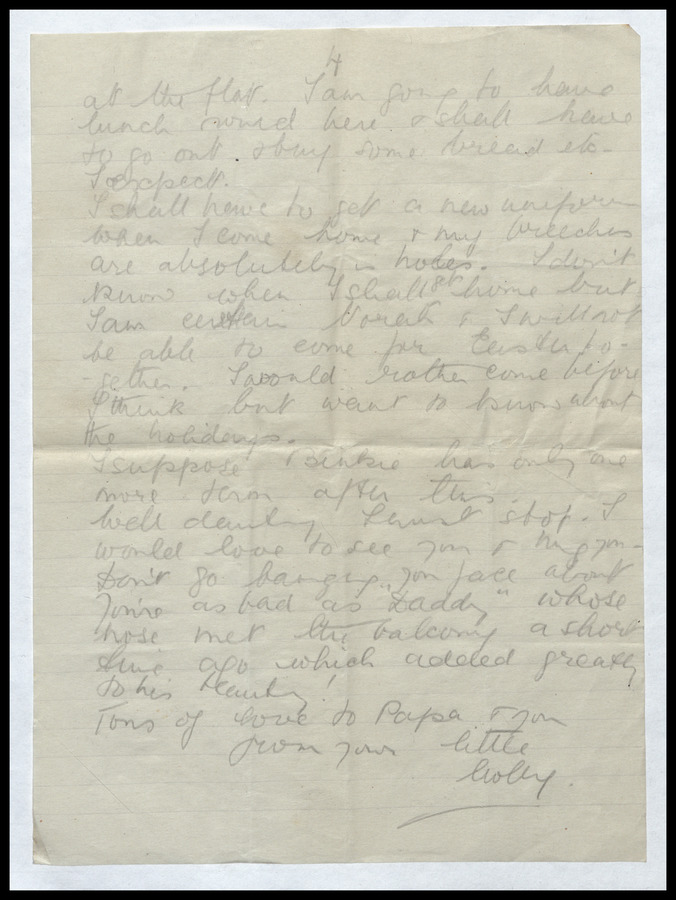 4
at the flat. I am going to have
lunch round here & shall have
to go out & buy some bread etc-
I expect.
I shall have to get a new uniform
when I come home & my breeches
are absolutely in holes. I don't
know when I shall get home but
I am certain Norah & I will not
be able to come for Easter to-
-gether. I would rather come before
I think but want to know about
the holidays.
I suppose Binkie has only one
more term after this.
Well darling I must stop. I
would love to see you & hug you-
Don't go banging your face about
You're as bad as "Daddy" whose
nose met the balcony a short
time ago which added greatly
to his beauty!
Tons of love to Papa & you
from your little